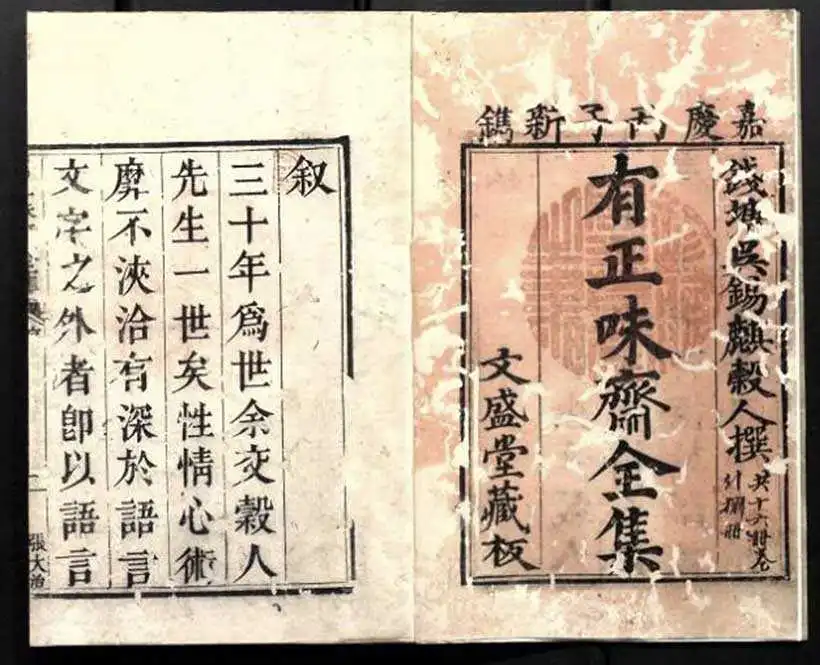 嘉慶丙子新鐫
錢塘吳錫麒穀人撰
有正味齋全集
文盛堂藏板
叙
三十年爲世余交穀人
先生一世矣性情心術
靡不浹洽有深於語言
文字之外者卽以語言
張大治